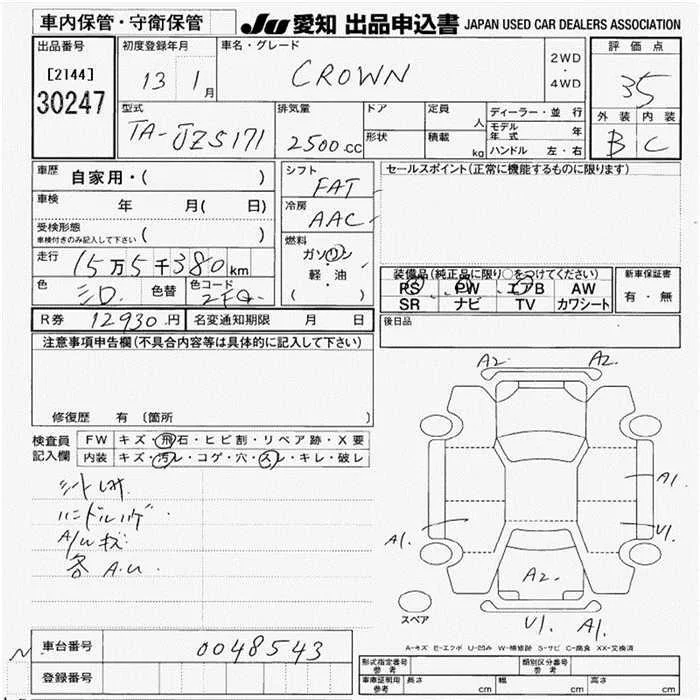 車内保管・守衛保管
JU 愛知 出品申込書 JAPAN USED CAR DEALERS ASSOCIATION
出品番号
[2144]
30247
初度登録年月
13 1月
車名・グレード
CROWN
2WD
・
4WD
評価点
35
外装 内装
B C
型式
TA-JZS171
排気量
2500.cc
ドア
形状
定員
人
積載
kg
ディーラー・並行
モデル年式 年
ハンドル 左・右
車歴
自家用・( )
車検
年 月( 日)
受検形態
車検付きのみ記入して下さい ( )
走行
15万5千380km
色
シロ.
色替
色コード
シフト
FAT
冷房
AAC
燃料
ガソリン
軽・油
( )
セールスポイント(正常に機能するものに限ります)
装備品(純正品に限り○をつけてください)
PS PW エアB AW
SR ナビ TV カワシート
新車保証書
有・無
R券 12930.円
名変通知期限 月 日
後日品
注意事項申告欄(不具合内容等は具体的に記入して下さい)
修復歴 有 (箇所 )
検査員記入欄
FW キズ・飛石・ヒビ割・リペア跡・X要
内装 キズ・汚レ・コゲ・穴・スレ・キレ・破レ
ハンドルハゲ.
A/Wキズ
各A.U.
A2. A2.
A1.
A1. U1.
A2.
U1. A1.
スペア
A-キズ E-エクボ U-凹み W-補修跡 S-サビ C-腐食 XX-交換済
車台番号
0048543
登録番号
形式指定番号
参考
類別区分番号
参考
車庫証明用
参考
長さ cm
幅 cm
高さ cm